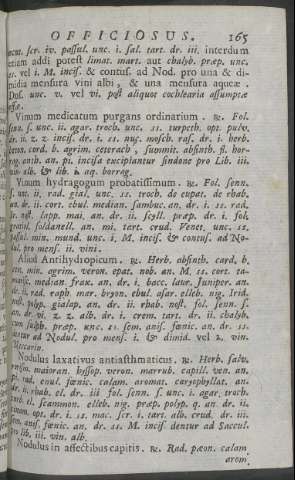 OFFICIOSUS. 165
ment. scr. iv. passul. unc. i. sal. tart. dr. iii. interdum
etiam addi potest limat. mart. aut chalyb. præp. unc.
ss. vel i. M. incis. & contus. ad Nod. pro una & di-
midia mensura vini albi, & una mensura aquæ.
Dos. unc. v. vel vi. post aliquot cochlearia assumptæ
Vinum medicatum purgans ordinarium. ℞. Fol.
senn. s. unc. ii. agar. troch. unc. ss. turpeth. opt. pulv.
dr. ii. z. z. incis. dr. i. ss. nuc. mosch. ras. dr. i. herb.
beton. card. b. agrim. ceterach, summit. absinth. fl. bor-
rag. anth. an. p. incisa excipiantur sindone pro Lib. iii.
vin. alb. & lib. aq. borrag.
Vinum hydragogum probatissimum. ℞. Fol. senn.
s. unc. ii. rad. gial, unc. ss. troch. de eupat. de rhab.
an. dr. ii. cort. ebul. median. sambuc. an. dr. i. ss. rad.
mai. an. dr. ii. scyll. præp. dr. i. fol.
soldanell. an. mi. tert. crud. Venet. unc. ss.
passul. min. mund. unc. i. M. incis. & contus. ad No-
dul. pro mens. ii. vini.
Aliud Antihydropicum. ℞. Herb. absinth. card. b.
min. agrim. veron. epat. nob. an. M. ss. cort. ta-
marisc. median. frax. an. dr. i. bacc. laur. Juniper. an.
dr. ii. rad. raph. mar. bryon. ebul. asar. elleb. nig. Irid.
polyp. gialap. an. dr. ii. rhab. fol. senn. s.
an. dr. vi. z. z. alb. dr. i. crem. tart. dr. ii. chalyb.
sulph. præp. unc. ss. sem. anis. fœnic. an. dr. ss.
ad Nodul. pro mens. i. & dimid. vel 2. vin.
Nodulus laxativus antiasthmaticus. ℞. Herb. salv.
maioran. hyssop. veron. marrub. capill. ven. an.
rad. enul. fœnic. calam. aromat. caryophyllat. an.
dr. ii. rhab. el. dr. iii fol. senn. s. unc. i. agar. troch.
el. scammon. elleb. nig. præp. polyp. q. an. dr. ii.
opt. dr. i. ss. mac. scr. i. tart. alb. crud. dr. iii.
anis. fœnic. an. dr. ss. M. incis. dentur ad Saccul.
pro lib. iii. vin. alb.
Nodulus in affectibus capitis. ℞. Rad. pæon. calam.
arom.